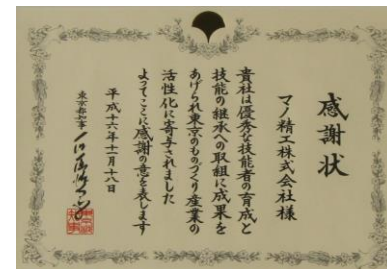 感謝状
マノ精工株式会社様
貴社は優秀な技能者の育成と
技能の継承への取組に成果を
あげられ東京のものづくり産業の
活性化に寄与されました
よってここに感謝の意を表します
平成十六年十一月十八日
東京都知事